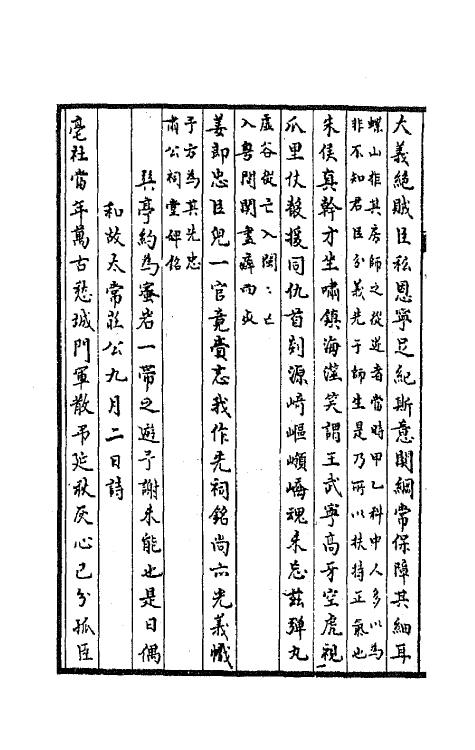 大義絕賊臣私恩寧足紀斯意關綱常保障其細耳
蝶山拒其房師之從逆者當時甲乙科中人多以為
非不知君臣分義先于師生是乃所以扶持正氣也
朱侯真幹才坐嘯鎮海澨笑謂王武寧高牙空虎視
爪里仗聲援同仇首剡源崎嶇嶺嶠魂未忘茲彈丸
虛谷從亡入閩閩亡
入粵間關盡瘁而死
姜即忠臣兒一官竟賫志我作先祠銘尚亦光義幟
予方為其先忠
肅公祠堂碑銘
巽亭約為蜜岩一帶之遊予謝未能也是日偶
和故太常莊公九月二日詩
亳社當年萬古愁城門軍散弔延秋灰心已分孤臣